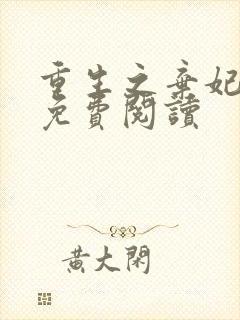 重生之棄妃
免費閱讀
黃大閑